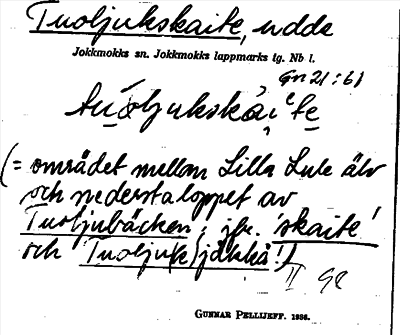 Tuoljukskaite, udde
Jokkmokks sn. Jokkmokks lappmarks tg. Nb l.
Gn 21:61
tuoljukskaite
(= området mellan Lilla Lule älv
och nedersta loppet av
Tuoljubäcken; jfr. 'skaite'
och Tuolju(k)jåkkå!)
II 98
GUNNAR PELLIJEFF. 1986.